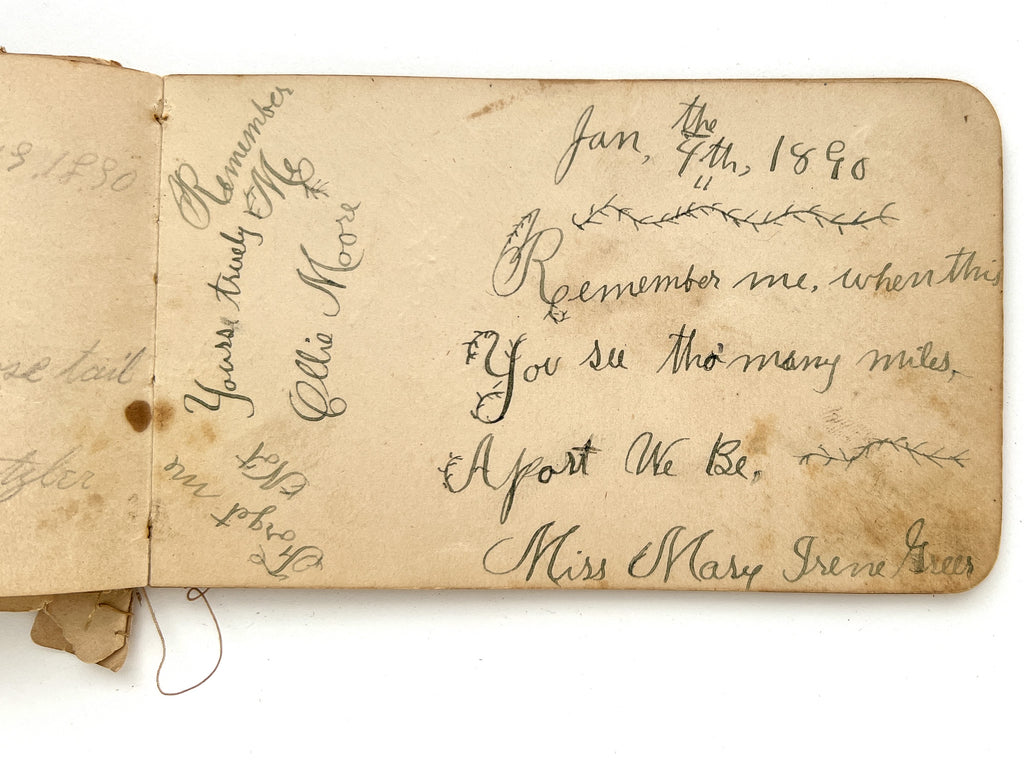 1890
se tail
tzler
Remember
Me
Yourse truely
Ellie Moore
Forget
Not
me
Jan, the 4th, 1890
Remember me, when this
You see tho' many miles,
Apart We Be.
Miss Mary Irene Greer